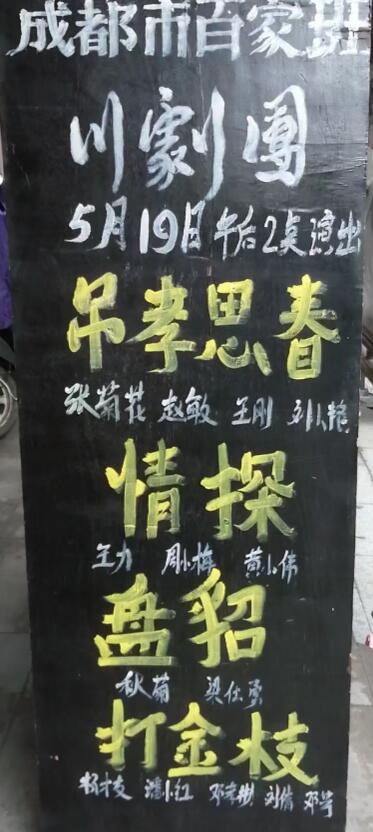 成都市百家班
川劇團
5月19日午后2点演出
吊孝思春
张菊花 赵敏 王刚 刘小艳
情探
王力 周小梅 黄小伟
盘貂
秋菊 梁仕勇
打金枝
杨才友 潘小红 刘倩